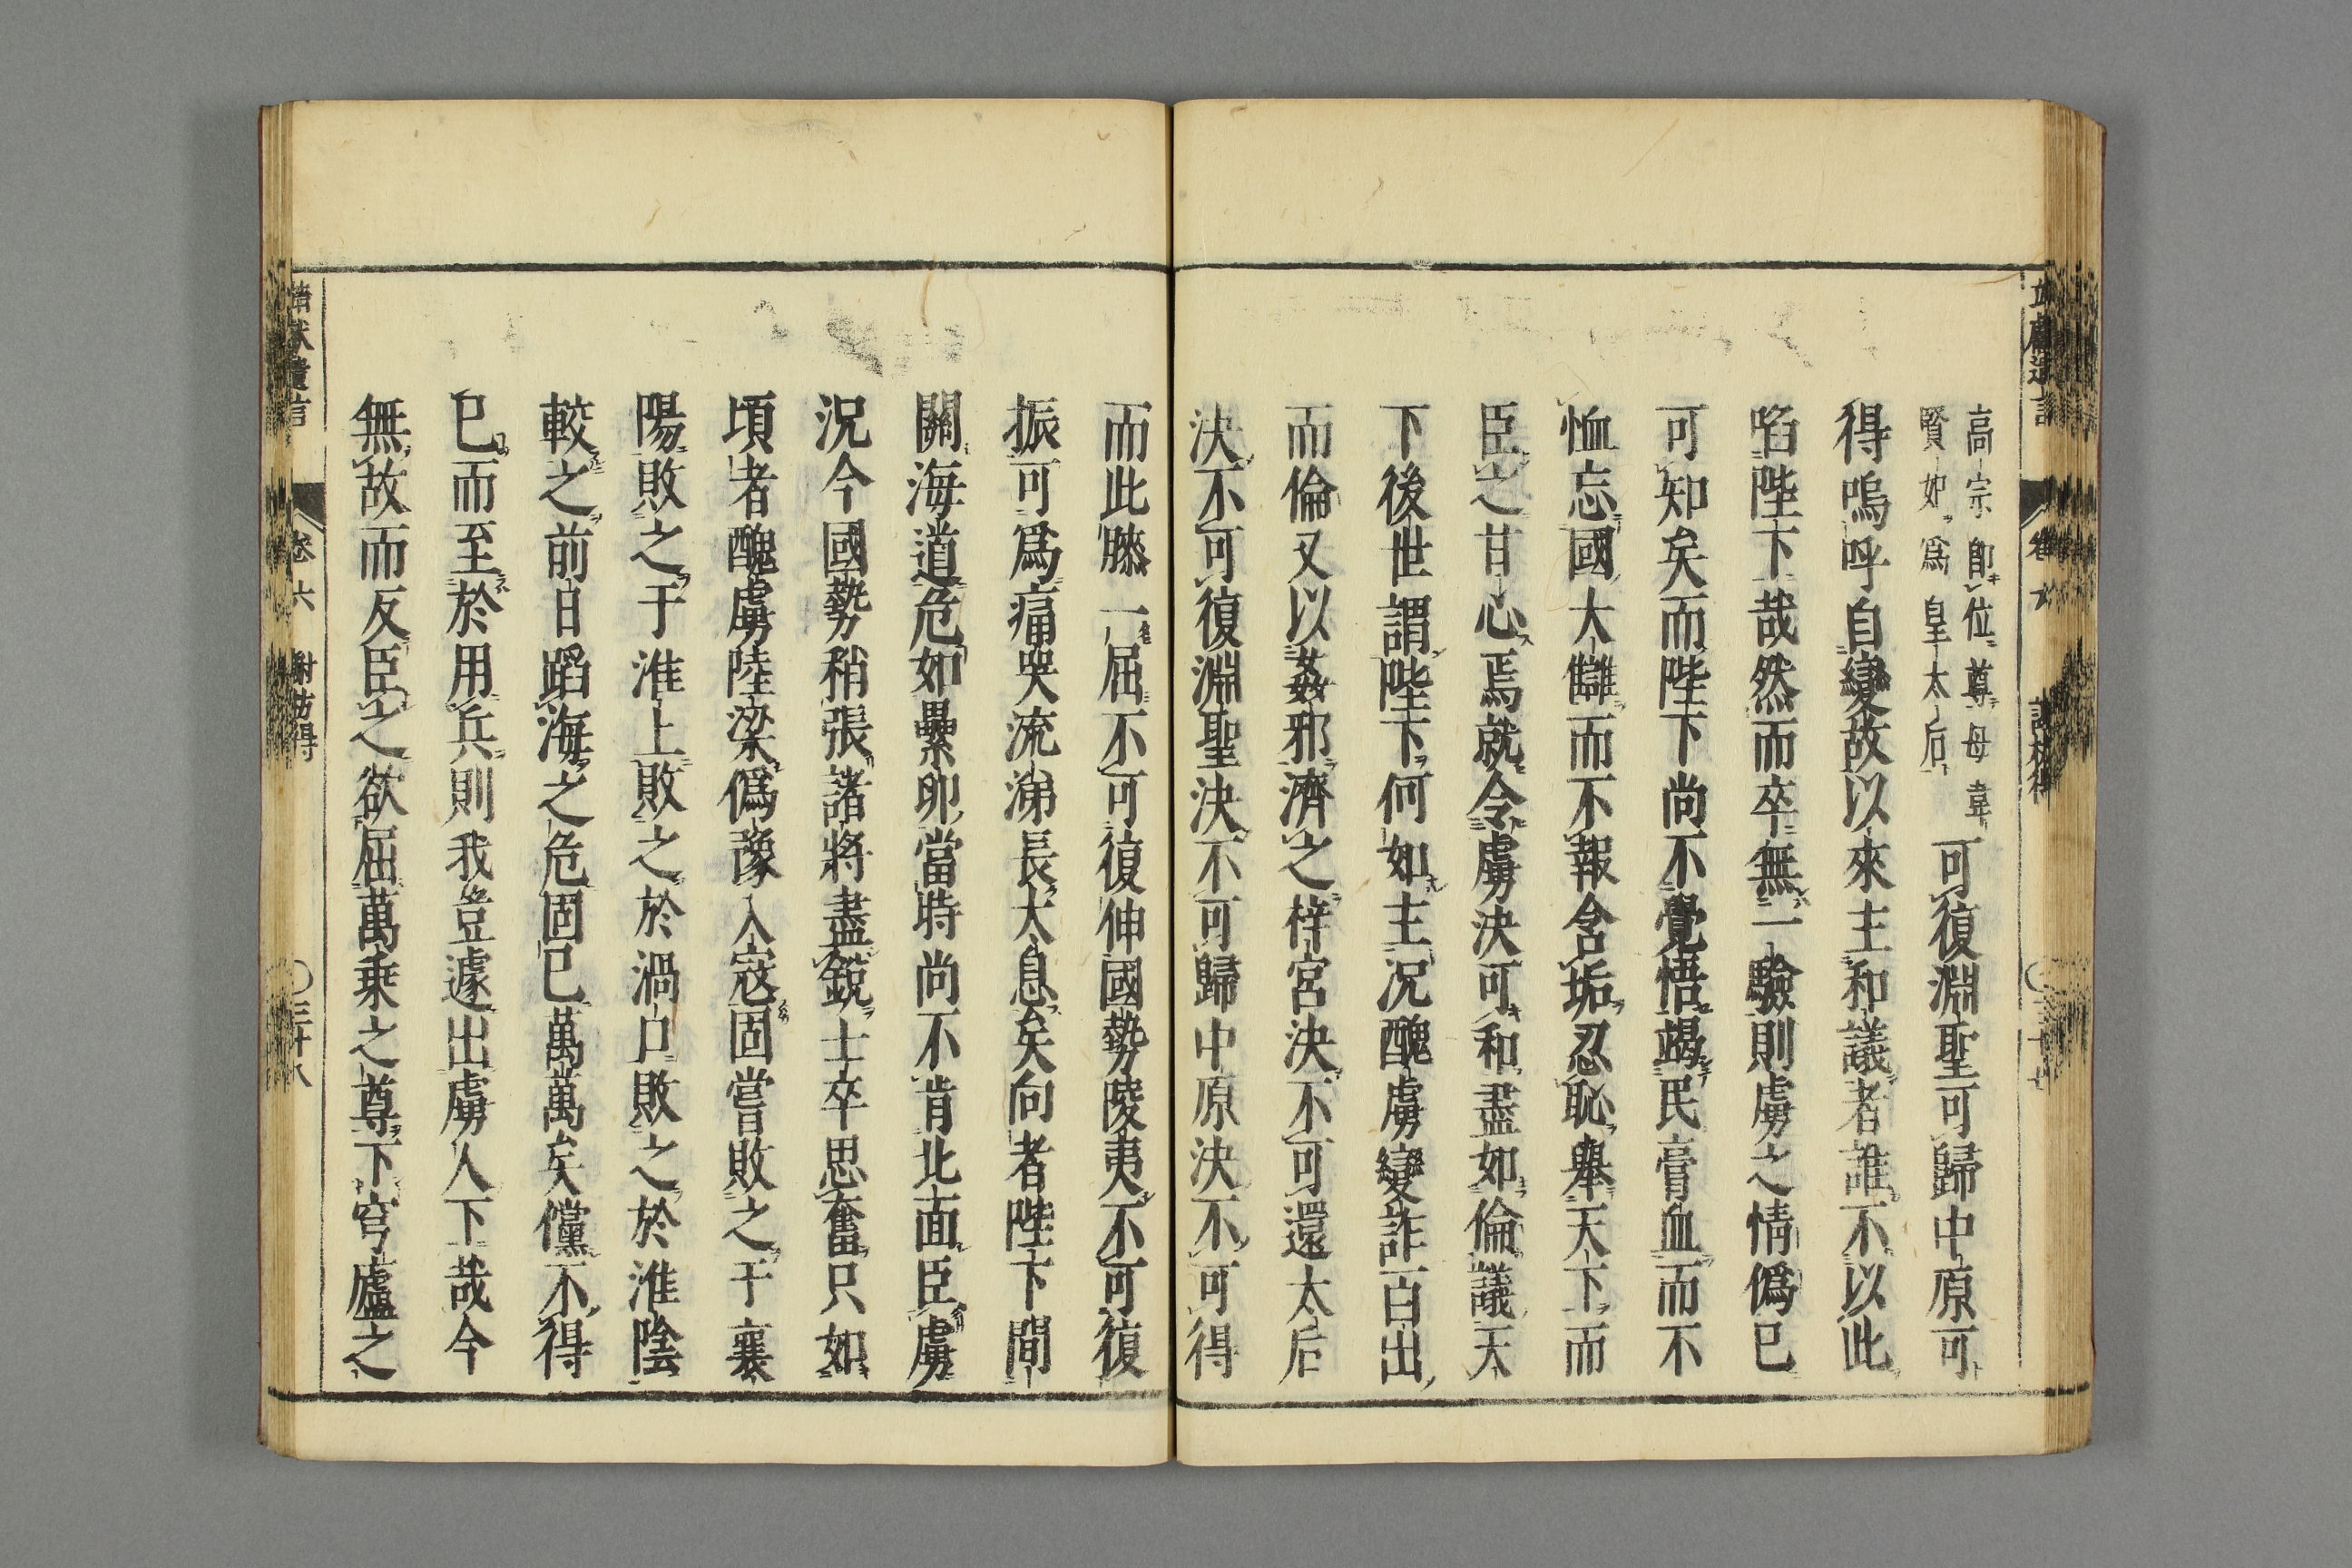 高宗即位尊母韋
賢妃爲皇太后
可復淵聖可歸中原可
得嗚呼自變故以來主和議者誰不以此
啗陛下哉然而卒無一驗則虜之情僞已
可知矣而陛下尚不覺悟竭民膏血而不
恤忘國大讎而不報含垢忍恥舉天下而
臣之甘心焉就令虜決可和盡如倫議天
下後世謂陛下何如主况醜虜變詐百出
而倫又以姦邪濟之梓宮決不可還太后
決不可復淵聖決不可歸中原決不可得
而此膝一屈不可復伸國勢陵夷不可復
振可爲痛哭流涕長太息矣向者陛下間
關海道危如累卵當時尚不肯北面臣虜
況今國勢稍張諸將盡銳士卒思奮只如
頃者醜虜陸梁僞豫入寇固嘗敗之于襄
陽敗之于淮上敗之於渦口敗之於淮陰
較之前日蹈海之危固已萬萬矣儻不得
已而至於用兵則我豈遽出虜人下哉今
無故而反臣之欲屈萬乗之尊下穹廬之
卷六
謝枋得
三十八